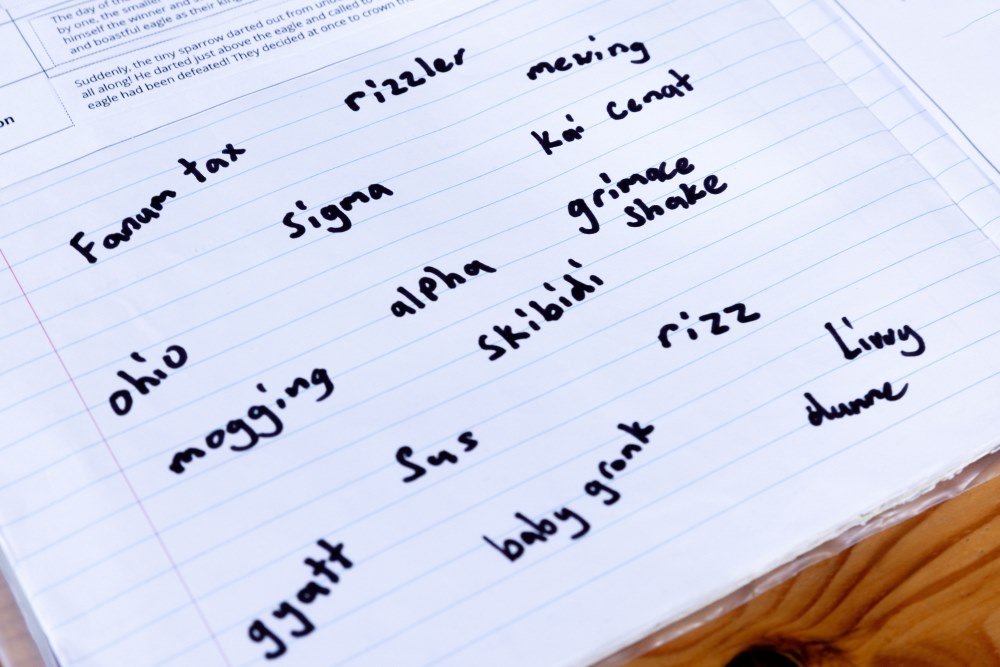 The day of
by one, the smaller
himself the winner and s
and boastful eagle as their king
Suddenly, the tiny sparrow darted out from und
all along! He darted just above the eagle and called to
eagle had been defeated! They decided at once to crown th
on
rizzler
mewing
Kai cenat
Fanum tax
sigma
grimace
shake
alpha
skibidi
rizz
Livvy
dunne
ohio
mogging
Sus
baby gronk
gyatt